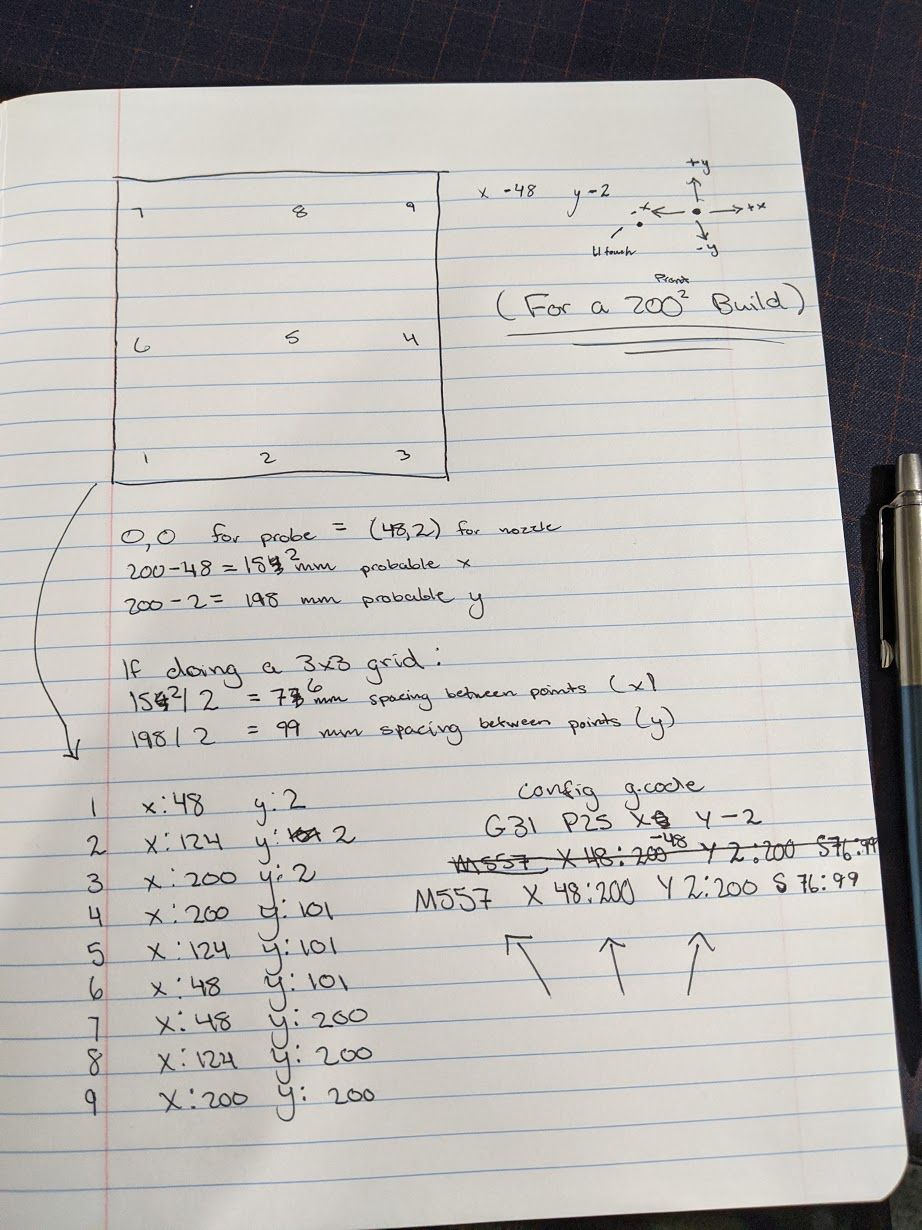 7 8 9
x -48 y -2
+y
-x +x
-y
Print
(For a 200² Build)
6 5 4
1 2 3
0,0 for probe = (48,2) for nozzle
200-48 = 152 mm probable x
200-2 = 198 mm probable y
If doing a 3x3 grid:
152/2 = 76 mm spacing between points (x)
198/2 = 99 mm spacing between points (y)
1 x:48 y:2
2 x:124 y: 2
3 x:200 y:2
4 x:200 y:101
5 x:124 y:101
6 x:48 y:101
7 x:48 y:200
8 x:124 y:200
9 x:200 y:200
config g.code
G31 P25 X-48 Y-2
M557 X 48:200 Y 2:200 S76:99
M557 X 48:200 Y 2:200 S 76:99